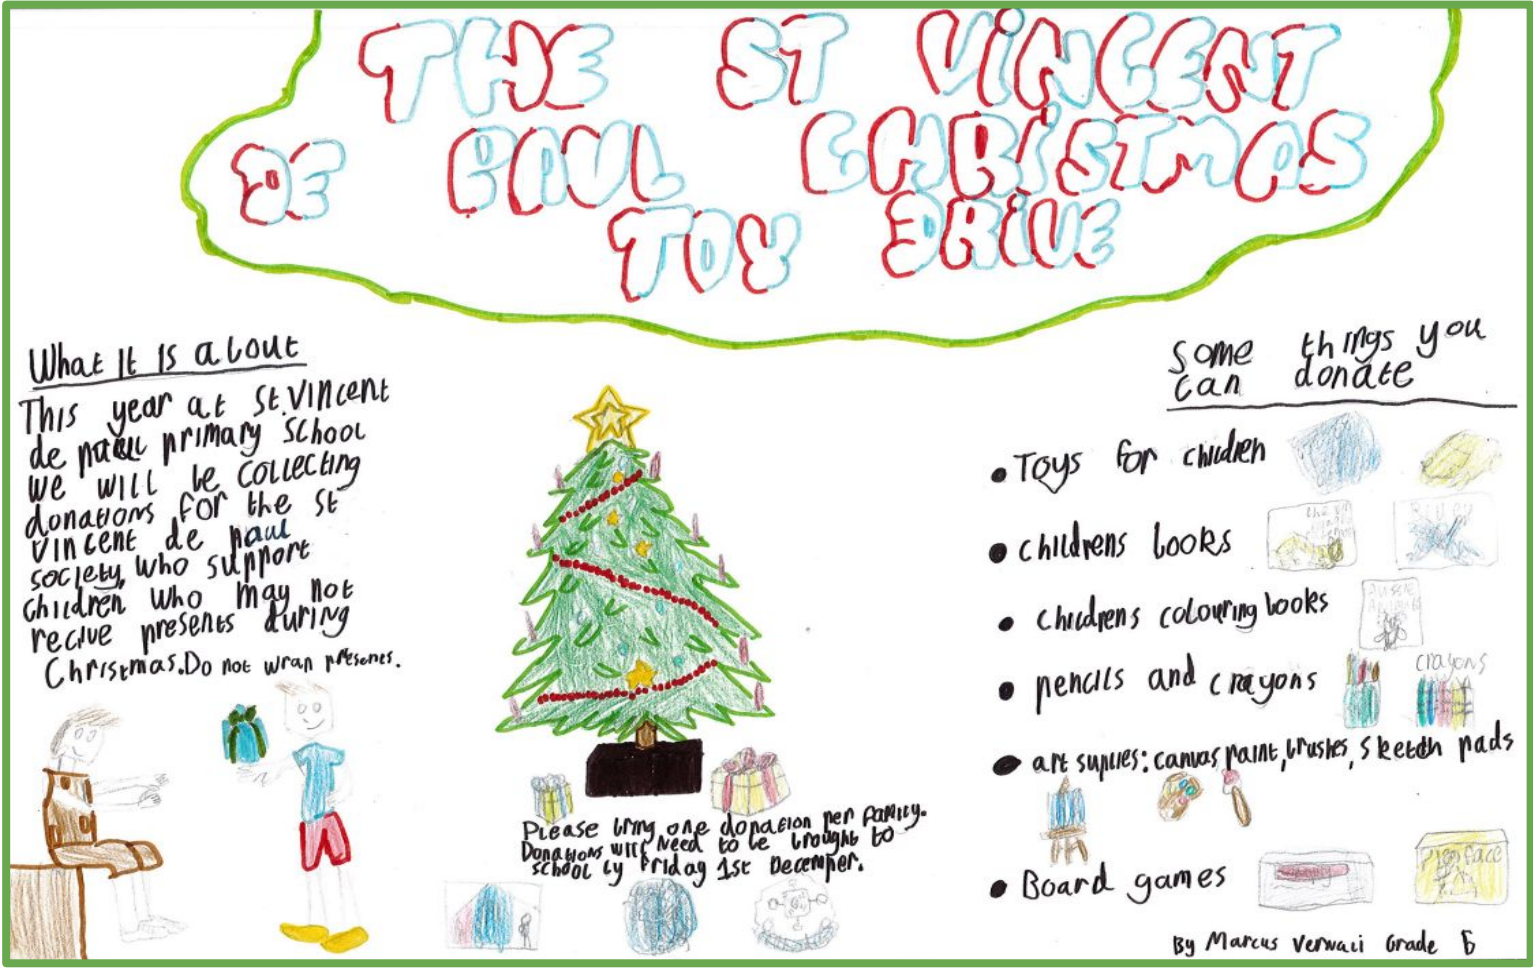 THE ST VINCENT
DE PAUL CHRISTMAS
TOY DRIVE
What It Is about
This year at St.Vincent
de paul primary School
we will be collecting
donations for the St
Vincent de paul
society, who support
children who may not
recive presents during
Christmas. Do not wrap presents.
Please bring one donation per family.
Donations will need to be brought to
school by Friday 1st December.
Some things you
can donate
• Toys for children
• childrens books
• childrens colouring books
AUSSIE
• pencils and crayons
crayons
• art suplies: canvas paint, brushes, sketch pads
• Board games
Pie face
By Marcus Verwaci Grade 6